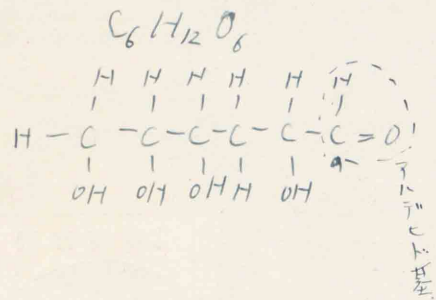 C6H12O6
H H H H H H
H - C - C - C - C - C - C = O
OH OH OH H OH
アルデヒド基